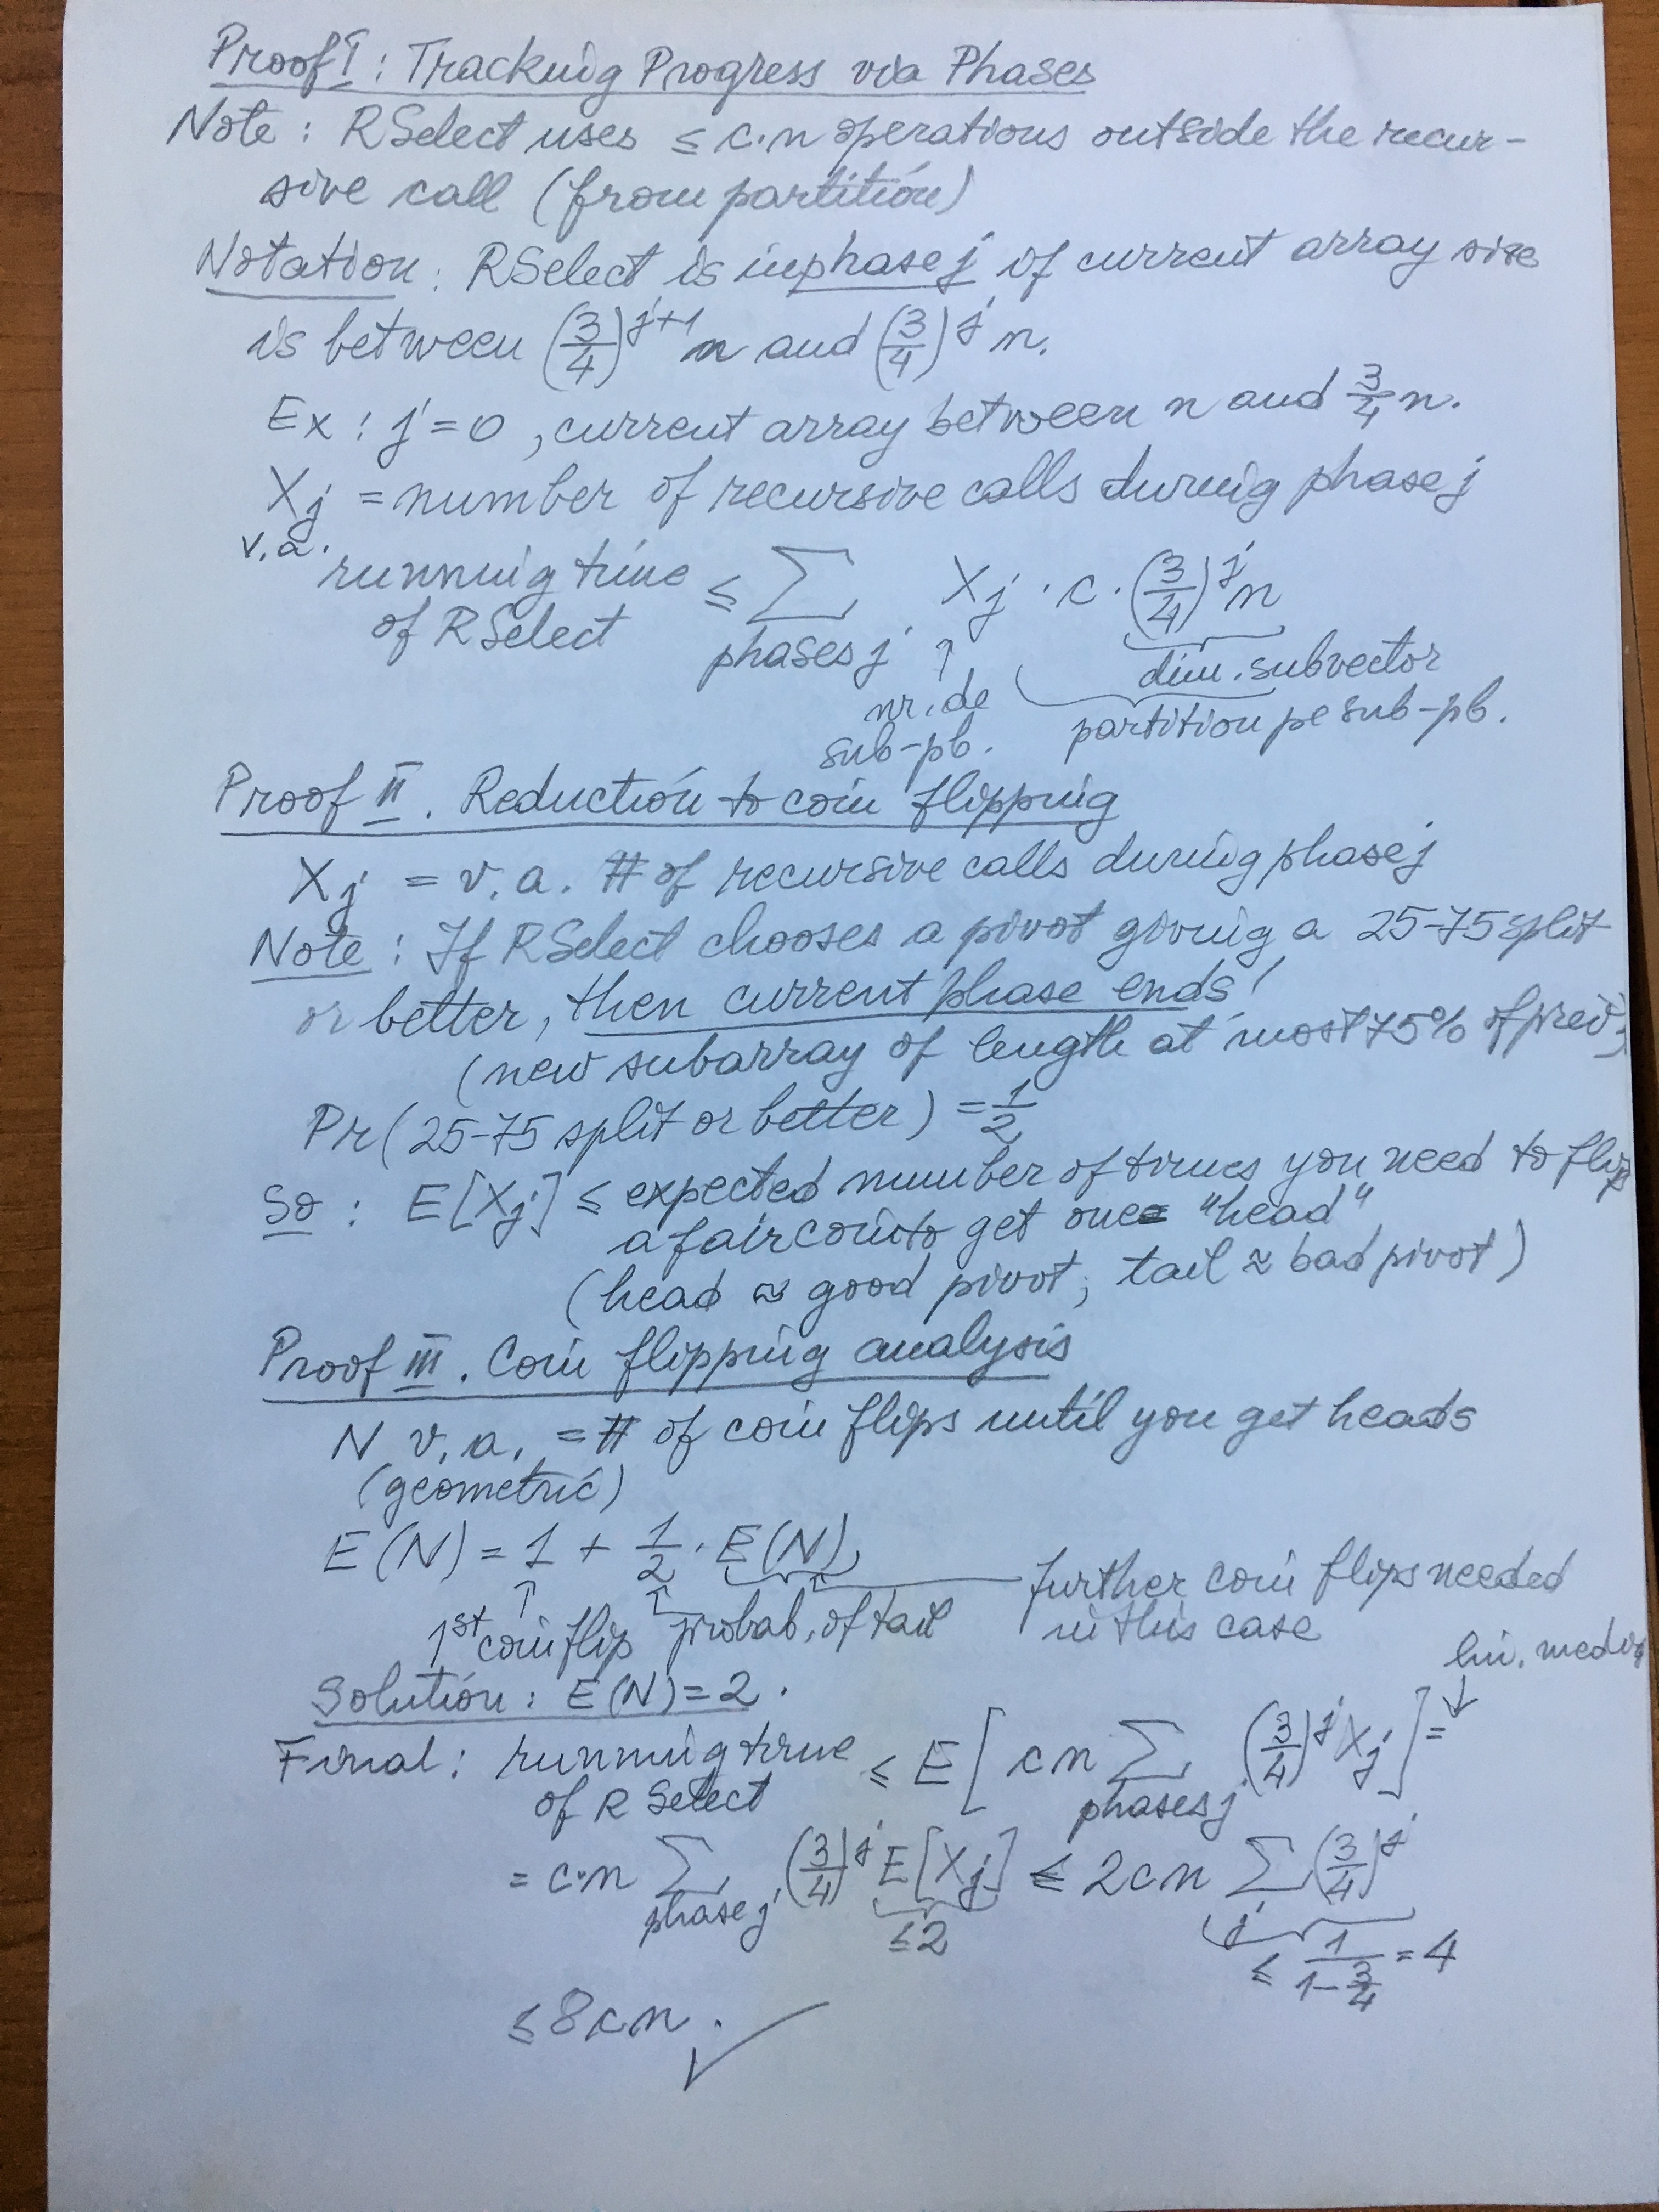 Proof I : Tracking Progress via Phases
Note : RSelect uses ≤ c·n operations outside the recur-
sive call (from partition)
Notation : RSelect is in phase j if current array size
is between (3/4)^{j+1} n and (3/4)^j n.
Ex : j = 0 , current array between n and 3/4 n.
Xj = number of recursive calls during phase j
v.a.
running time of RSelect ≤ ∑_{phases j} Xj · c · (3/4)^j n
↑ nr. de sub-pb.
dim. subvector
partition pe sub-pb.
Proof II . Reduction to coin flipping
Xj = v.a. # of recursive calls during phase j
Note : If RSelect chooses a pivot giving a 25-75 split
or better, then current phase ends!
(new subarray of length at most 75% of prev.)
Pr( 25-75 split or better ) = 1/2
So : E[Xj] ≤ expected number of times you need to flip
a fair coin to get one "head"
(head ≈ good pivot, tail ≈ bad pivot)
Proof III . Coin flipping analysis
N v.a. = # of coin flips until you get heads
(geometric)
E(N) = 1 + 1/2 · E(N)
↑ 1st coin flip
↑ probab. of tail
further coin flips needed
in this case
Solution : E(N) = 2 .
lin. mediei
↓
Final : running time of RSelect ≤ E[ cn ∑_{phases j} (3/4)^j Xj ] =
= c·n ∑_{phase j} (3/4)^j E[Xj] ≤ 2cn ∑_j (3/4)^j
≤ 2
≤ 1/(1-3/4) = 4
≤ 8cn . ✓